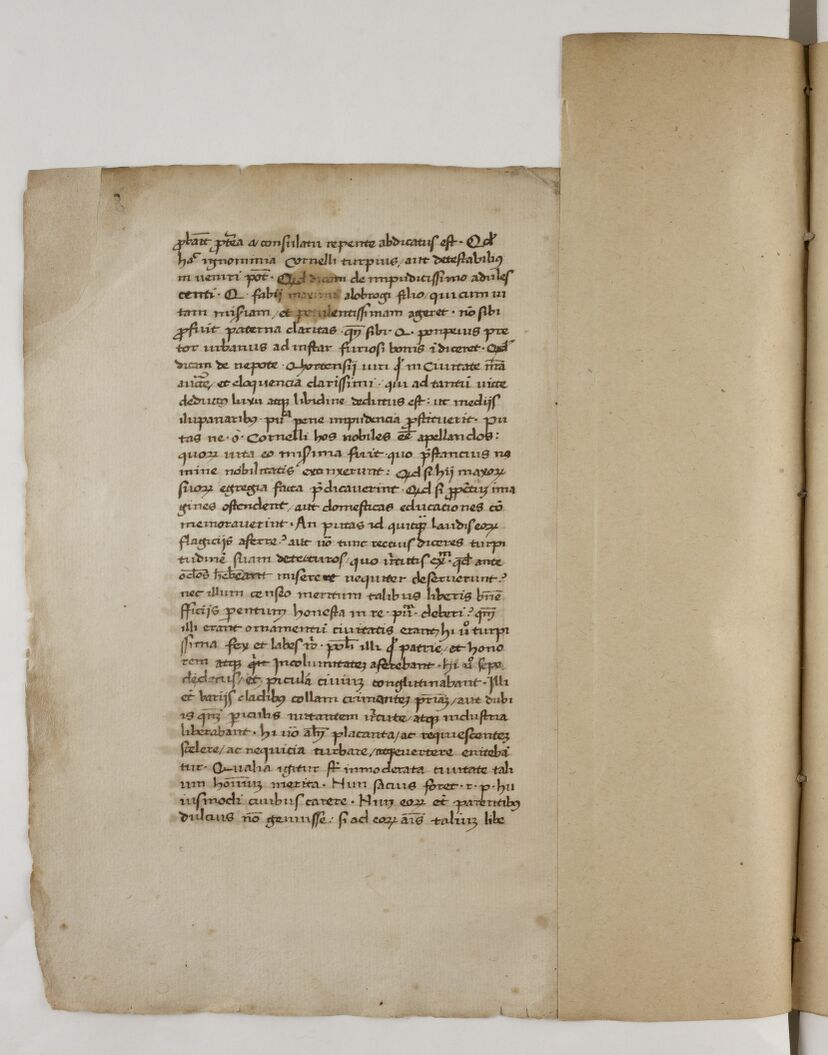 ꝓbāit ꝓp̄ea a cōnsulatu repente abdicatus est · Qd̄
hac ignominia Cornelli turpius / aut detestabilius
in veniri pot̄ · Qd̄ dicam de impudicissimo adules
centi · Q · fabii maximi alobrogi filio / qui cum ui
tam misiam / et petulentissimam ageret · nō sibi
ꝓfuit paterna claritas · qn̄ sibi · Q · pompeius pre
tor urbanus ad instar furiosi bonis īdiceret · Qd̄
dicam de nepote · Q hortensii uiri qd̄ in Ciuitate nr̄a
auct̄e / et eloquencia clarissimi · qui ad tantū uite
luxu atqꝫ libidine deditus est : ut mediis
ilupanaribꝰ · pene impudencia ꝓstituerit · Pu
tas ne · o · Cornelli hos nobiles eē apellandos :
quoꝝ uita eo misima fuit · quo p̄stancius no
mine nobilitatis extinxerunt : Qd̄ si hii maioꝝ
suoꝝ egregia facta p̄dicauerint · Qd̄ si ima
gines ostendent / aut domesticas educationes cō
memorauerint · An putas id quitqꝫ laudis eoꝝ
flagiciis aferre ? aut uō tunc rectius diceres turpi
tudinē suam detecturos / quo uirtutis · qd̄ ante
misere et nequiter deseruerunt ?
nec illum censeo meritum talibus liberis bn̄e
fficiis honesta in re · · deberi ? qm̄
illi erant ornamentū ciuitatis erant / hi uō turpi
ssima fex et labes · illi patrie / et hono
rem atqꝫ Incolumitatem aferebant · hi uō sepe
dedecus / et piculā ciuium conglutinabant · Illi
et uariis cladibꝰ collam / aut dubi
is periculis nutantem uirtute / atqꝫ industria
liberabant · hi uō placanta / ac requiescentem
scelere / ac nequicia turbare / atqꝫ uertere enitebā
tur · Qualia igitur inmoderata tali
um hominum merita · Nun sacius foret · r · p · hu
iusmodi ciuibus carere · Nun eoꝝ et parentibꝰ
dulcius nō genuisse : si ad eoꝝ talium libe